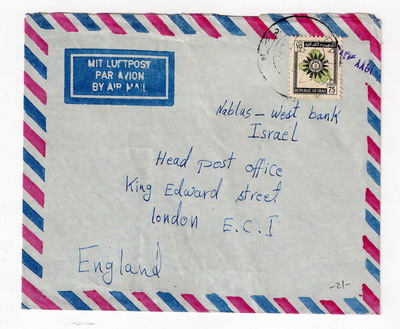 MIT LUFTPOST
PAR AVION
BY AIR MAIL
75
REPUBLIC OF IRAQ
75
Nablus - West bank
Israel
Head post office
King Edward street
London E.C.I
England
-21-